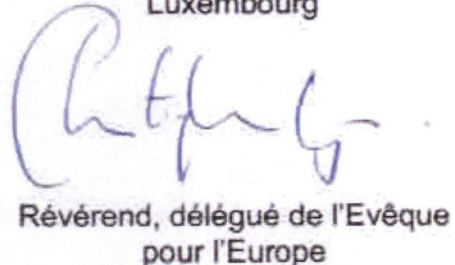 Luxembourg
Révérend, délégué de l'Evêque
pour l'Europe